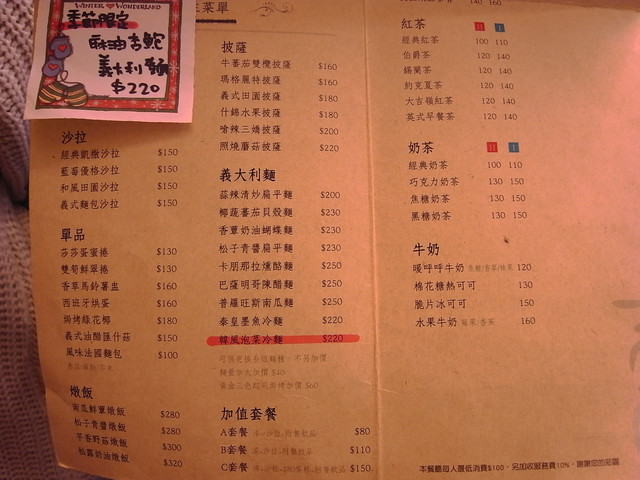 WINTER WONDERLAND
季節限定
麻油杏鮑
義大利麵
$220
菜單
沙拉
經典凱撒沙拉 $150
藍莓優格沙拉 $150
和風田園沙拉 $150
義式麵包沙拉 $150
單品
莎莎蛋蜜捲 $130
雙筍鮮翠捲 $130
香草馬鈴薯盅 $160
西班牙烘蛋 $160
焗烤綠花椰 $180
義式油醋匯什菇 $150
風味法國麵包 $100
燉飯
南瓜鮮蕈燉飯 $280
松子青醬燉飯 $280
芋香野菇燉飯 $300
松露奶油燉飯 $320
披薩
牛蕃茄雙欖披薩 $160
瑪格麗特披薩 $160
義式田園披薩 $180
什錦水果披薩 $180
嗆辣三嬌披薩 $200
照燒蘑菇披薩 $220
義大利麵
蒜辣清炒扁平麵 $200
椰蔬蕃茄貝殼麵 $230
香蕈奶油蝴蝶麵 $230
松子青醬扁平麵 $230
卡朋那拉燻酪麵 $250
巴薩明哥陳醋麵 $250
普羅旺斯南瓜麵 $250
泰皇墨魚冷麵 $220
韓風泡菜冷麵 $220
可依更換各組麵種,不另加價
麵量加大加價 $40
加值套餐
A套餐 $80
B套餐 $110
C套餐 $150
140 160
紅茶
經典紅茶 100 110
伯爵茶 120 140
錫蘭茶 120 140
約克夏茶 120 140
大吉嶺紅茶 120 140
英式早餐茶 120 140
奶茶
經典奶茶 100 110
巧克力奶茶 130 150
焦糖奶茶 130 150
黑糖奶茶 130 150
牛奶
暖呼呼牛奶 120
棉花糖熱可可 130
脆片冰可可 150
水果牛奶 160
本餐廳每人最低消費$100,另加收服務費10%,謝謝您的光臨